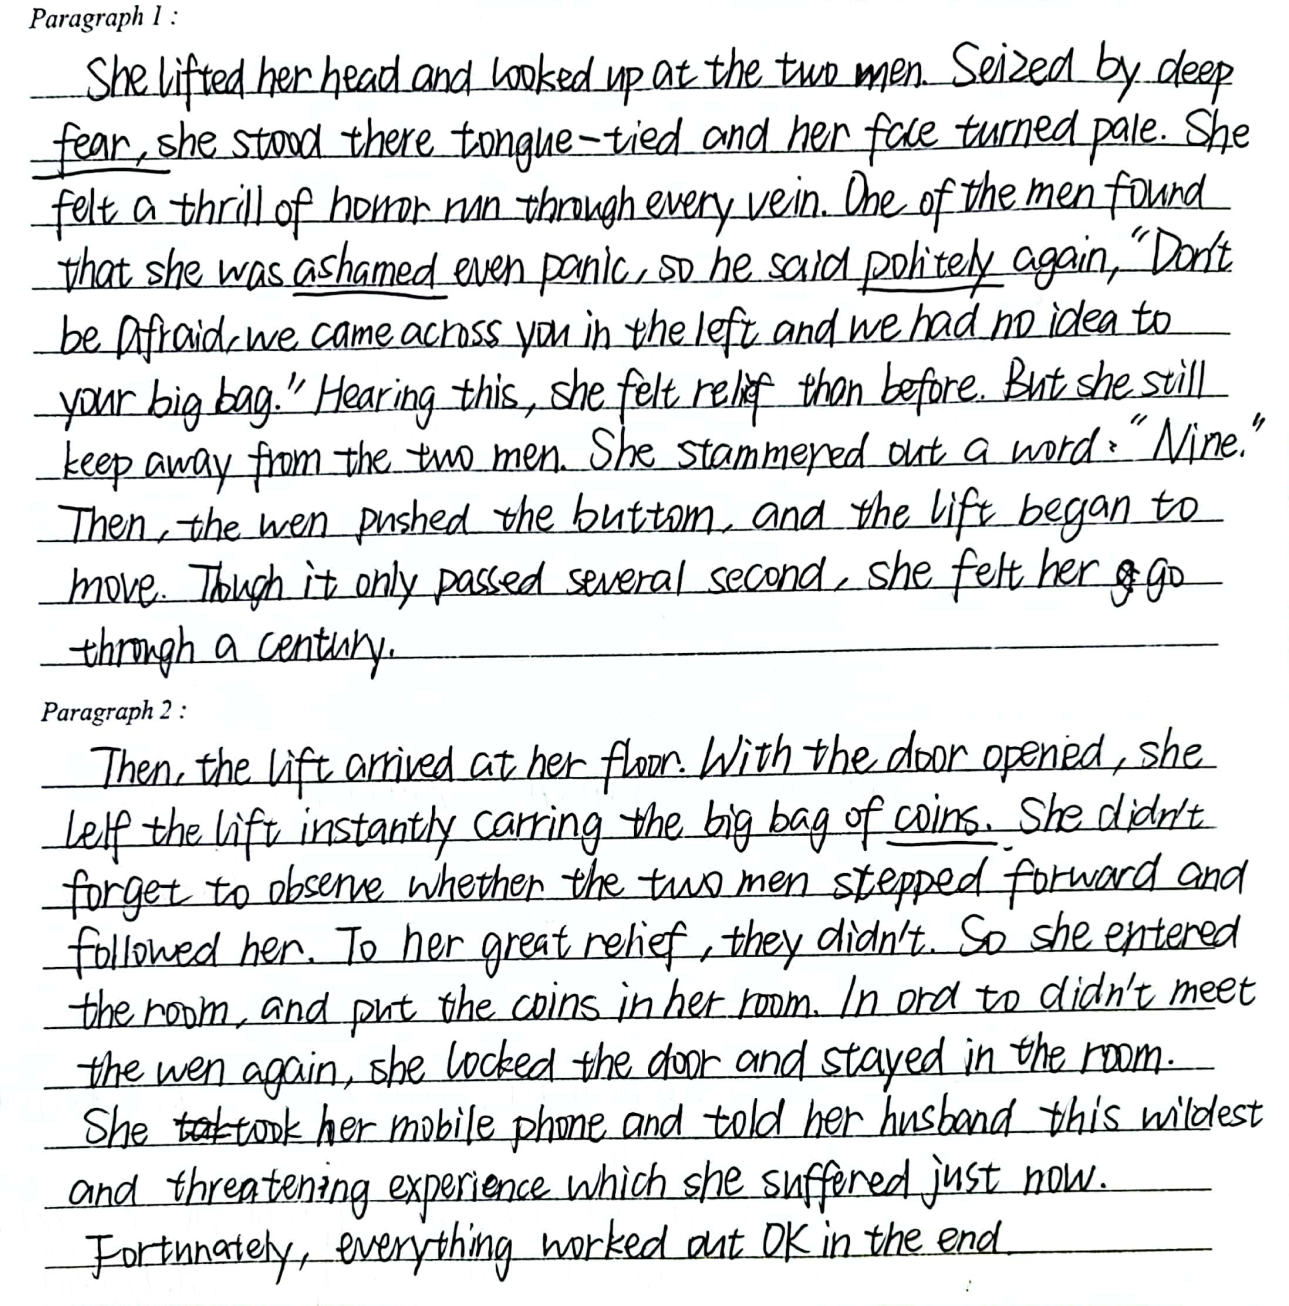 Paragraph 1 :
She lifted her head and looked up at the two men. Seized by deep
fear, she stood there tongue-tied and her face turned pale. She
felt a thrill of horror run through every vein. One of the men found
that she was ashamed even panic, so he said politely again, "Don't
be Afraid, we came across you in the left and we had no idea to
your big bag." Hearing this, she felt relief than before. But she still
keep away from the two men. She stammered out a word: "Nine."
Then, the wen pushed the buttom, and the lift began to
move. Though it only passed several second, she felt her go
through a century.
Paragraph 2 :
Then, the lift arrived at her floor. With the door opened, she
lelf the lift instantly carring the big bag of coins. She didn't
forget to observe whether the two men stepped forward and
followed her. To her great relief, they didn't. So she entered
the room, and put the coins in her room. In ord to didn't meet
the wen again, she locked the door and stayed in the room.
She took her mobile phone and told her husband this wildest
and threatening experience which she suffered just now.
Fortunately, everything worked out OK in the end